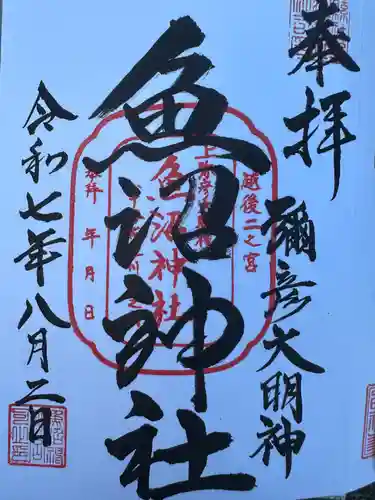 奉拝
彌彦大明神
魚沼神社
令和七年八月二日
越後二之宮
魚沼神社
奉拝 年 月 日